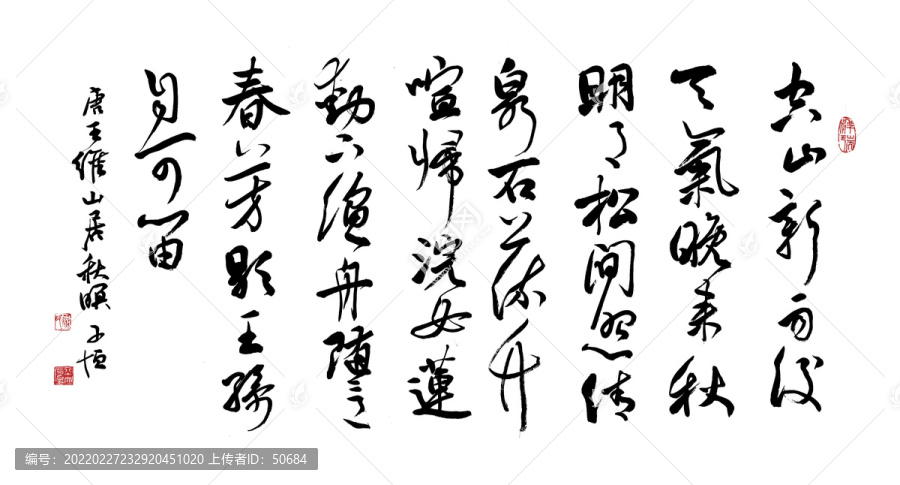 空山新雨後
天氣晚来秋
明月松間照清
泉石上流竹
喧歸浣女蓮
動下漁舟隨意
春芳歇王孫
自可留
唐王維山居秋暝 子恒
编号：20220227232920451020 上传者ID：50684